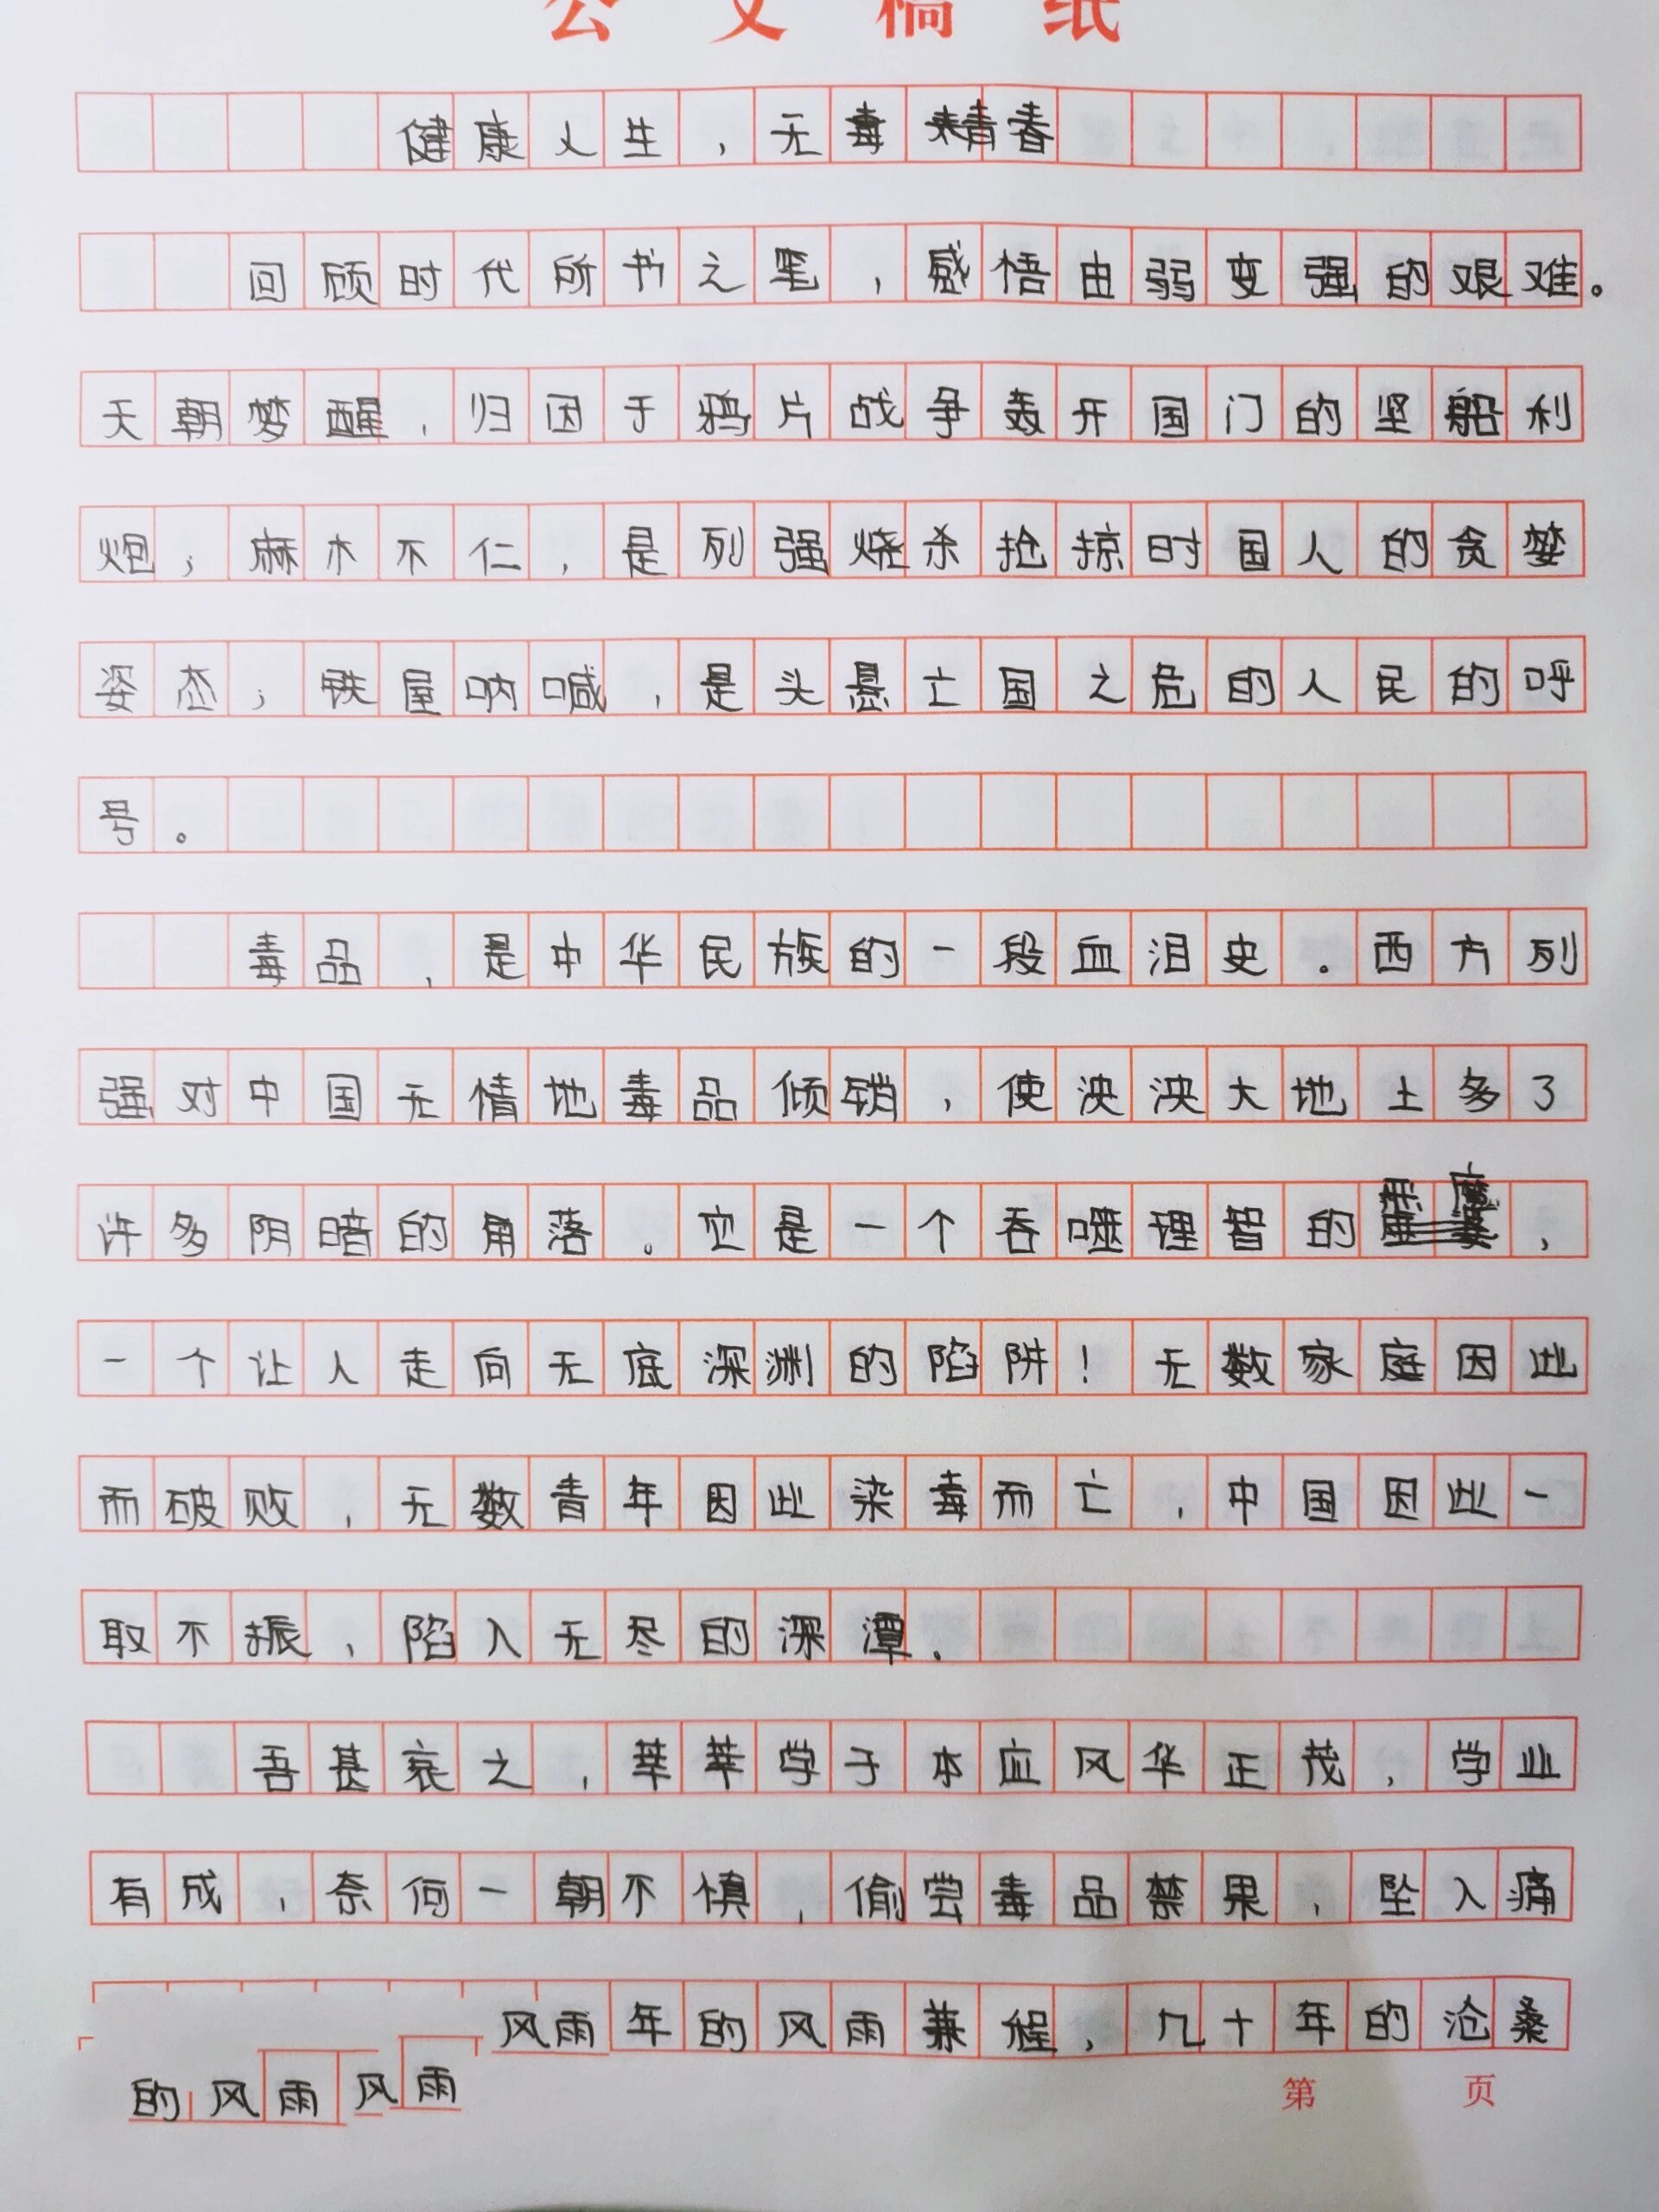 公文稿纸
健康人生，无毒精青春
回顾时代所书之笔，感悟由弱变强的艰难。
天朝梦醒，归因于鸦片战争轰开国门的坚船利
炮；麻木不仁，是列强烧杀抢掠时国人的贪婪
姿态；铁屋呐喊，是头悬亡国之危的人民的呼
号。
毒品，是中华民族的一段血泪史。西方列
强对中国无情地毒品倾销，使泱泱大地上多了
许多阴暗的角落。它是一个吞噬理智的恶魔，
一个让人走向无底深渊的陷阱！无数家庭因此
而破败，无数青年因此染毒而亡，中国因此一
取不振，陷入无尽的深潭.
吾甚哀之，莘莘学子本应风华正茂，学业
有成，奈何一朝不慎，偷尝毒品禁果，坠入痛
风雨年的风雨兼程，几十年的沧桑
的风雨风雨
第 页